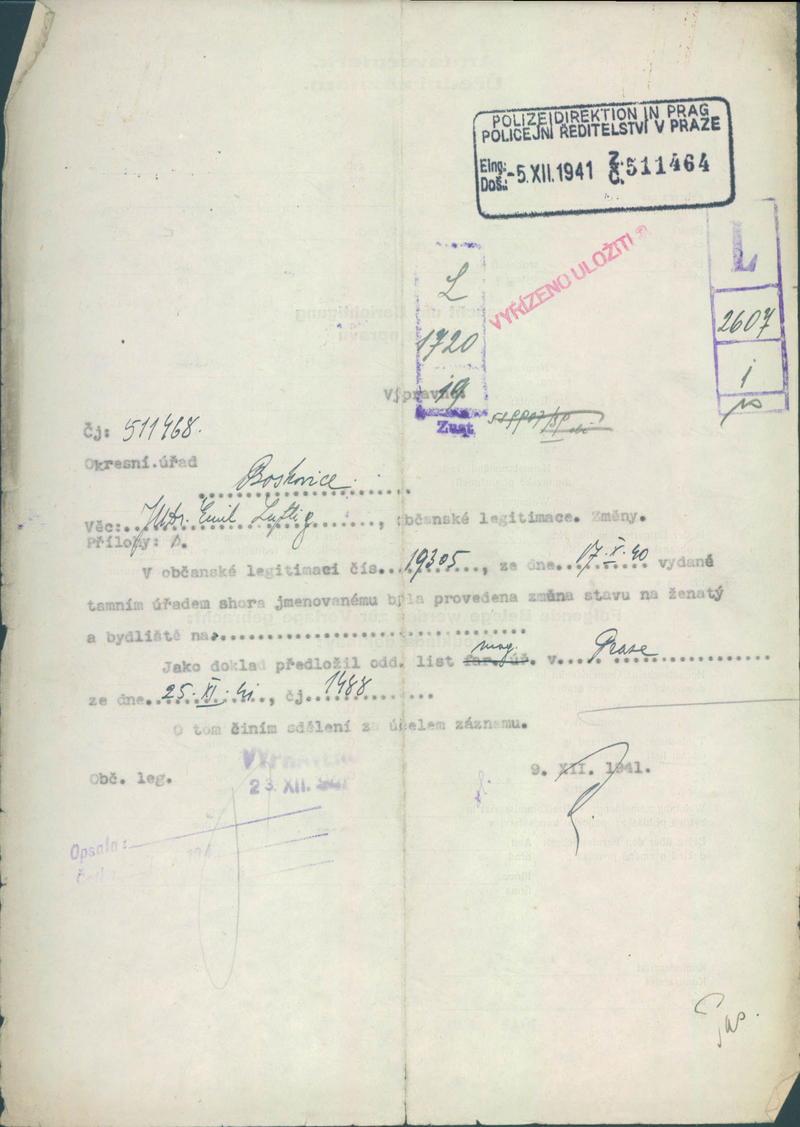 POLIZEIDIREKTION IN PRAG
POLICEJNÍ ŘEDITELSTVÍ V PRAZE
Eing.: Doš.: -5.XII.1941 Z. Č. 511464
L
VYŘÍZENO ULOŽITI
L
2607
1720
i
19
Výpravně.
Zust
Čj: 511468.
Okresní úřad
Boskovice
Věc: JUDr. Emil Luftig, občanské legitimace. Změny.
Přílohy: 0.
V občanské legitimaci čís. 19305, ze dne 17. X. 40 vydané
tamním úřadem shora jmenovanému byla provedena změna stavu na ženatý
a bydliště na
mag.
Jako doklad předložil odd. list far. úř. v Praze
ze dne 25. XI. 41, čj. 1488
O tom činím sdělení za účelem záznamu.
9. XII. 1941.
Obč. leg.
23 XII.
Opsala: